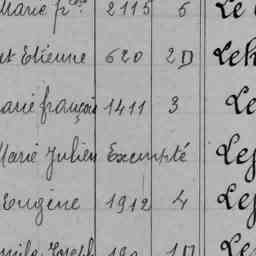 Marie fçse 2115 6 Le
et Etienne 620 2D Leh
arie françois 1411 3 Le
Marie Julien Exempté Lej
Eugène 1912 4 Lej
mile Joseph 1D Le